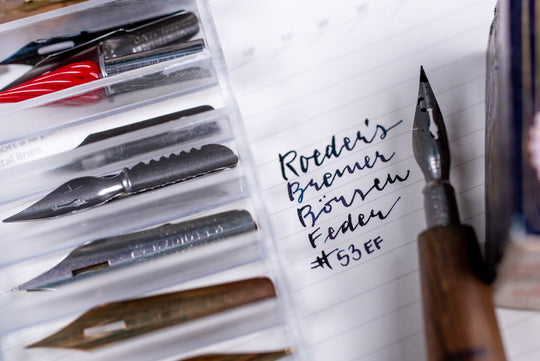 Roeder's
Bremer
Börsen
Feder
#53EF
tal lines.